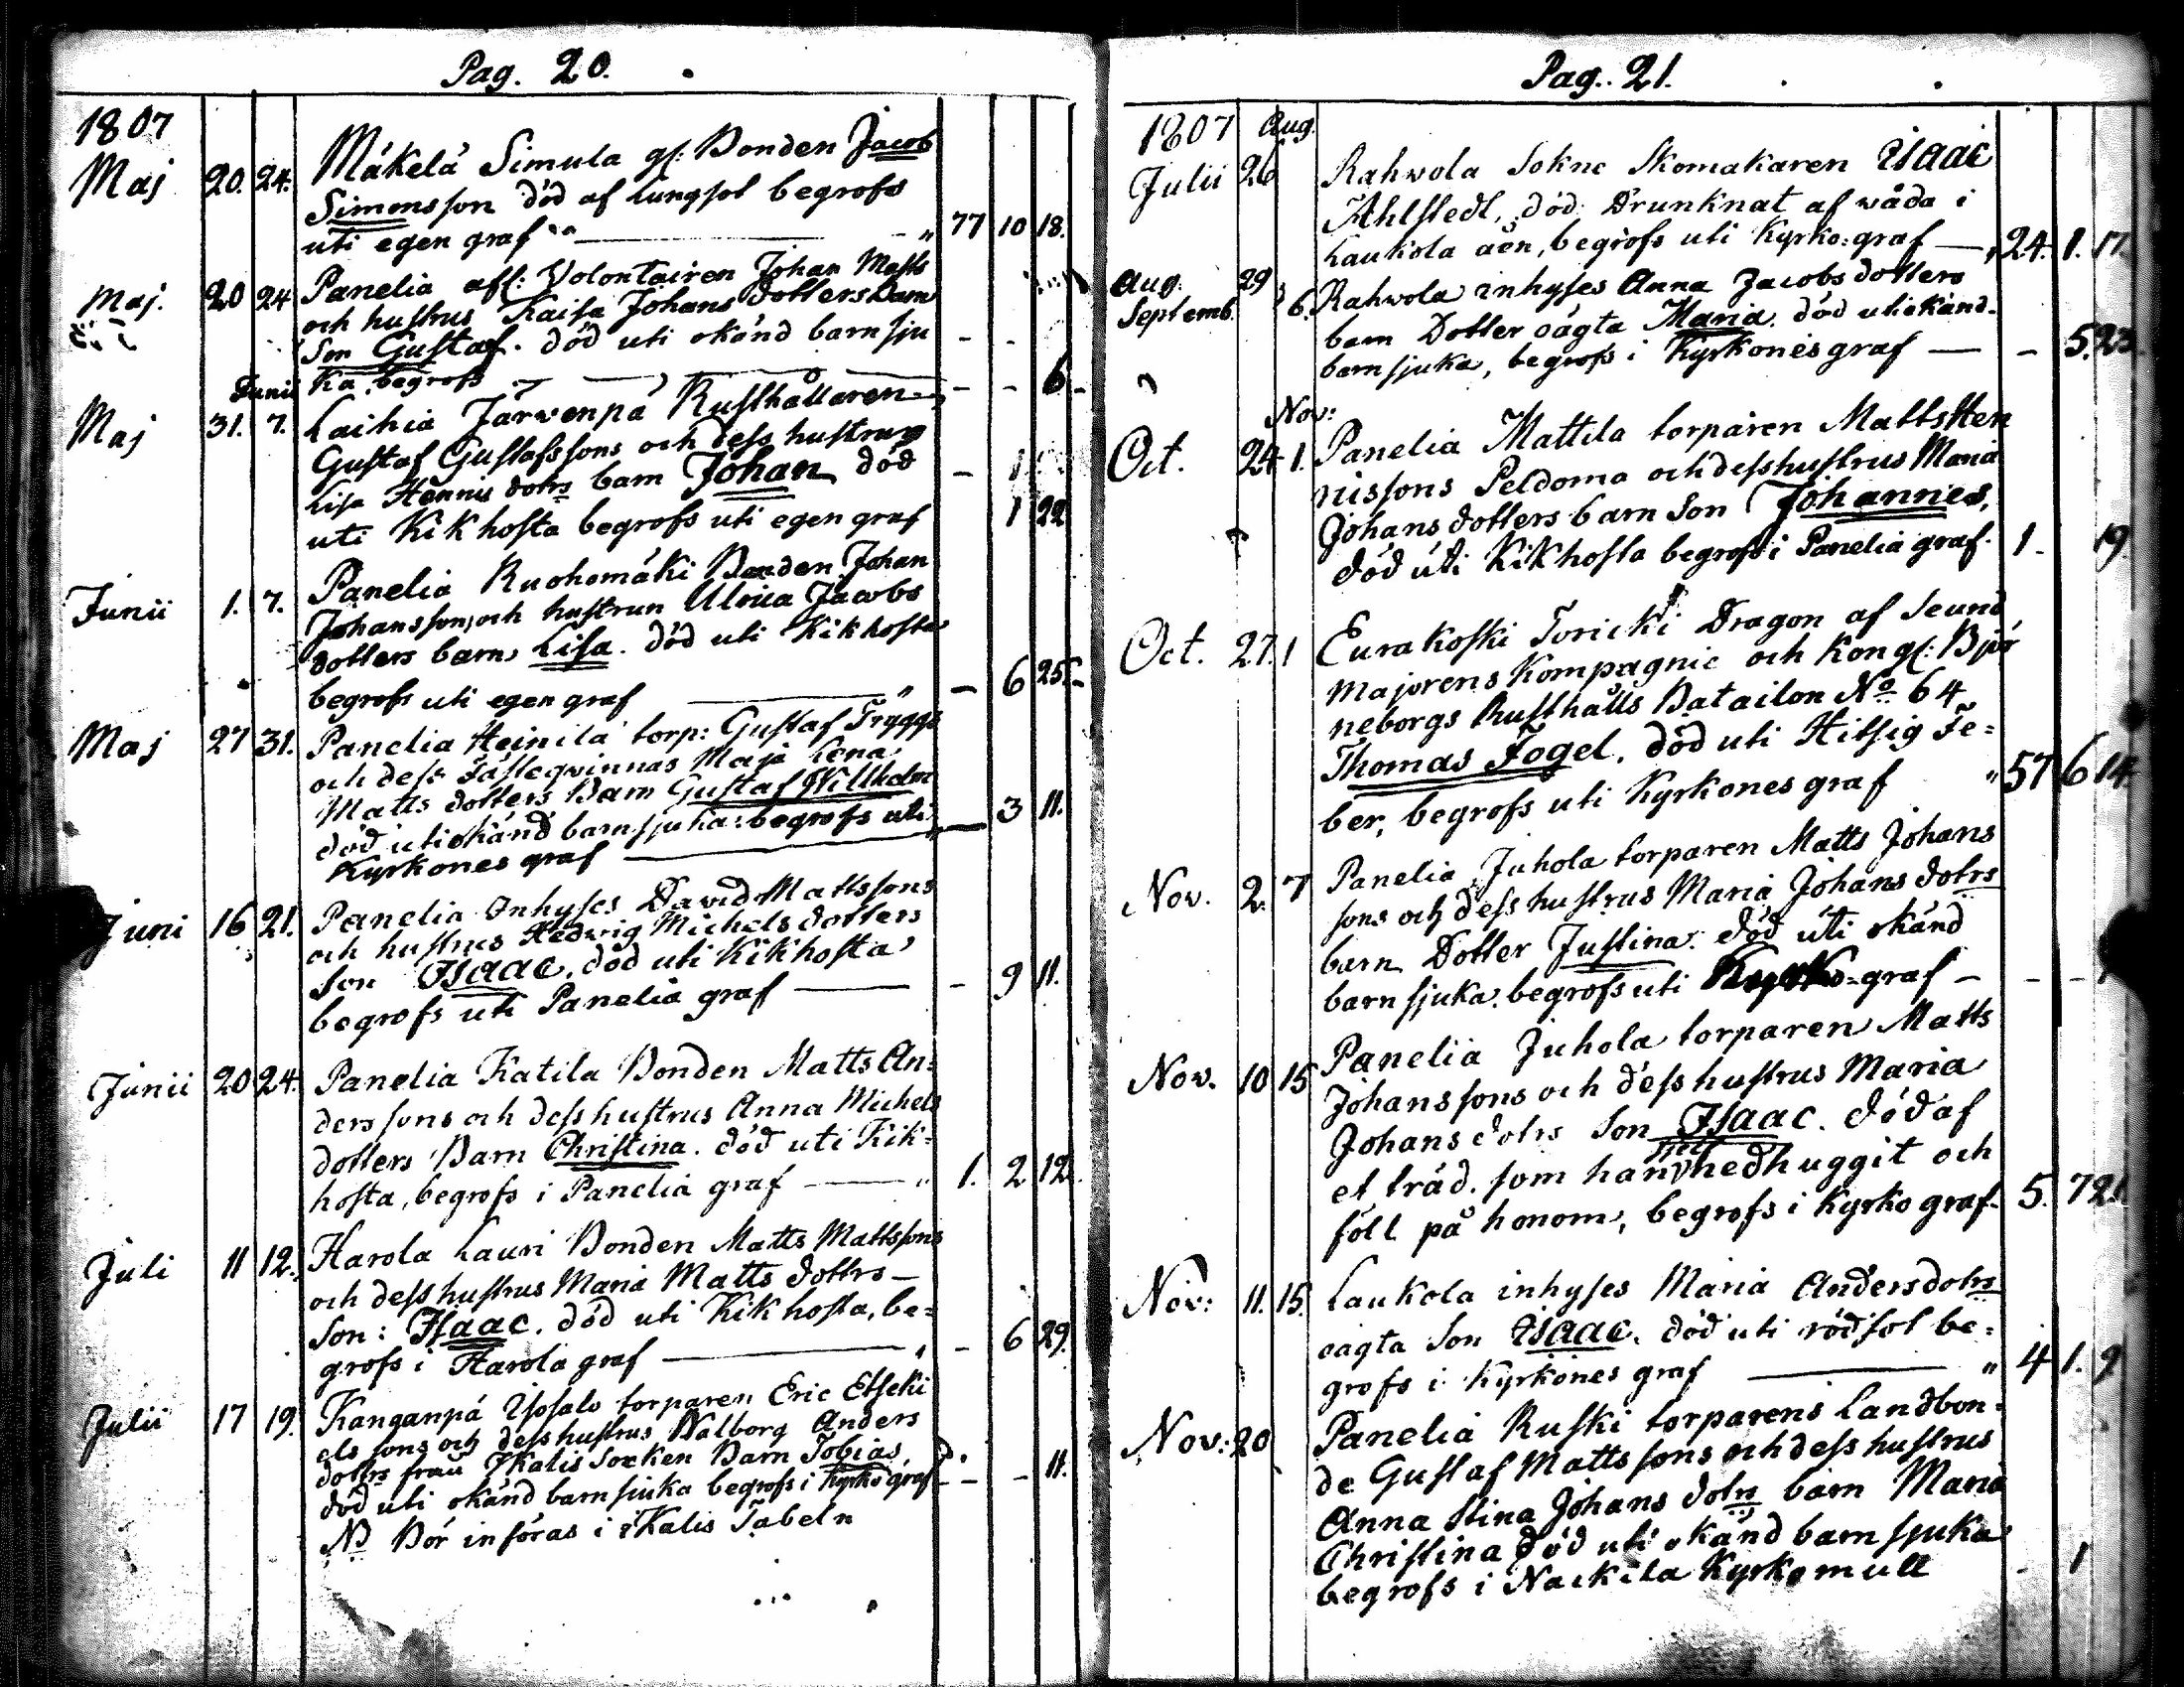 Pag. 20.
1807
Maj 20. 24. Mäkelä Simula gl: Bonden Jacob
Simonsson död af lungsot begrofs
uti egen graf — " 77 10 18.
Maj. 20 24 Panelia afl: Volontairen Johan Matts
och hustrus Kaisa Johans dotters Barn
Son Gustaf. död uti okänd barnsju
ka begrofs — - - 6
Junii
Maj 31. 7. Laihia Järwenpä Rusthållaren
Gustaf Gustafssons och dess hustrus
Lisa Hennis dotrs barn Johan död
uti Kikhosta begrofs uti egen graf 1 22
Junii 1. 7. Panelia Ruohomäki Bonden Johan
Johansson, och hustrun Ulrica Jacobs
dotters barn Lisa. död uti Kikhosta
begrofs uti egen graf — " - 6 25.
Maj 27 31. Panelia Heinilä torp: Gustaf Tryggs
och dess Fästeqvinnas Maja Lena
Matts dotters Barn Gustaf Willhelm
död uti okänd barnsjuka: begrofs uti
Kyrkones graf — 3 11.
Juni 16 21. Panelia Inhyses David Mattssons
och hustrus Hedwig Michels dotters
Son Isaac. död uti Kikhosta
begrofs uti Panelia graf — - 9 11.
Junii 20 24. Panelia Katila Bonden Matts An-
derssons och dess hustrus Anna Michels
dotters Barn Christina. död uti Kik-
hosta, begrofs i Panelia graf — " 1. 2 12
Juli 11 12. Harola Lauri Bonden Matts Mattssons
och dess hustrus Maria Matts dottrs —
Son: Isaac. död uti Kikhosta, be-
grofs i Harola graf — " - 6 29.
Julii 17 19. Kanganpä Ißosalo torparen Eric Etseki
els sons och dess hustrus Walborg Anders
dotrs från Ikalis Socken Barn Tobias
död uti okänd barnsjuka begrofs i Kyrko graf - - 11.
NB Bör införas i iKalis Tabeln
Pag. 21.
1807 Aug.
Julii 26 Rahwola Sokne Skomakaren Isaac
Ahlstedt, död: Drunknat af wåda i
Laukola åen, begrofs uti Kyrko=graf — " 24. 1. 17.
Aug. 29
Septemb. 6. Rahwola inhyses Anna Jacobs dotters
barn Dotter oägta Maria. död uti okänd-
barnsjuka, begrofs i Kyrkones graf — - 5. 23
Nov:
Oct. 24 1. Panelia Mattila torparen Matts Hen
nissons Peldoma och dess hustrus Maria
Johans dotters barn Son Johannes,
död uti Kikhosta begrofs i Panelia graf. 1 - 19
Oct. 27. 1 Eurakoski Toricki Dragon af Seund
Majorens Kompagnie och Kongl: Bjö
neborgs Rusthålls Batailon No 64
Thomas Fogel. död uti Hitsig Fe=
ber, begrofs uti Kyrkones graf " 57 6 14.
Nov. 2. 7 Panelia Juhola torparen Matts Johans
sons och dess hustrus Maria Johans dotrs
barn Dotter Justina. död uti okänd
barnsjuka. begrofs uti Kyrko=graf - - -
Nov. 10 15 Panelia Juhola torparen Matts
Johanssons och dess hustrus Maria
Johans dotrs Son Isaac. död af
et träd. som han sjelf nedhuggit och
föll på honom, begrofs i Kyrko graf. 5. 7 21.
Nov: 11. 15. Laukola inhyses Maria Andersdotrs
oägta Son Isaac. död uti rödsot be=
grofs i Kyrkones graf — " 4 1. 9
Nov: 20 Panelia Ruski torparens Landbon=
de Gustaf Mattssons och dess hustrus
Anna Stina Johans dotrs barn Maria
Christina död uti okänd barnsjuka
begrofs i Nackila Kyrkomull - 1